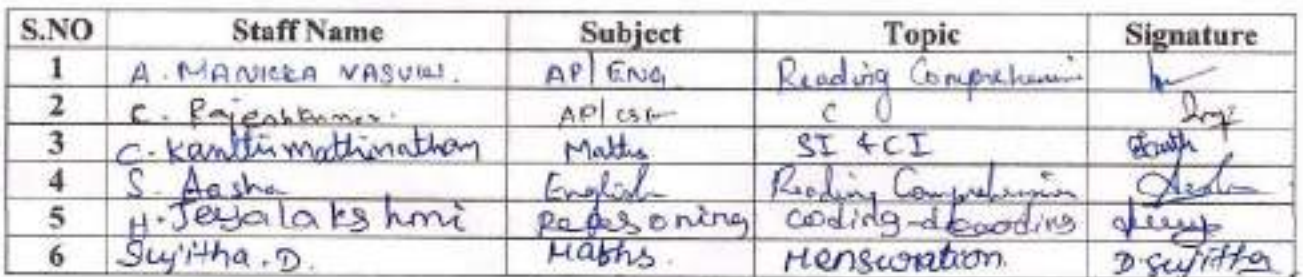 S.NO Staff Name Subject Topic Signature
1 A. MANICKA VASUKI. AP/ ENG Reading Comprehension
2 C. Rajeshkumar. AP/ CSE C
3 C. Kanthimathinathan Maths SI & CI
4 S. Aasha English Reading Comprehension
5 H. Jeyalakshmi Reasoning coding-decoding
6 Sujitha. D. Maths. Mensuration D. Sujitha